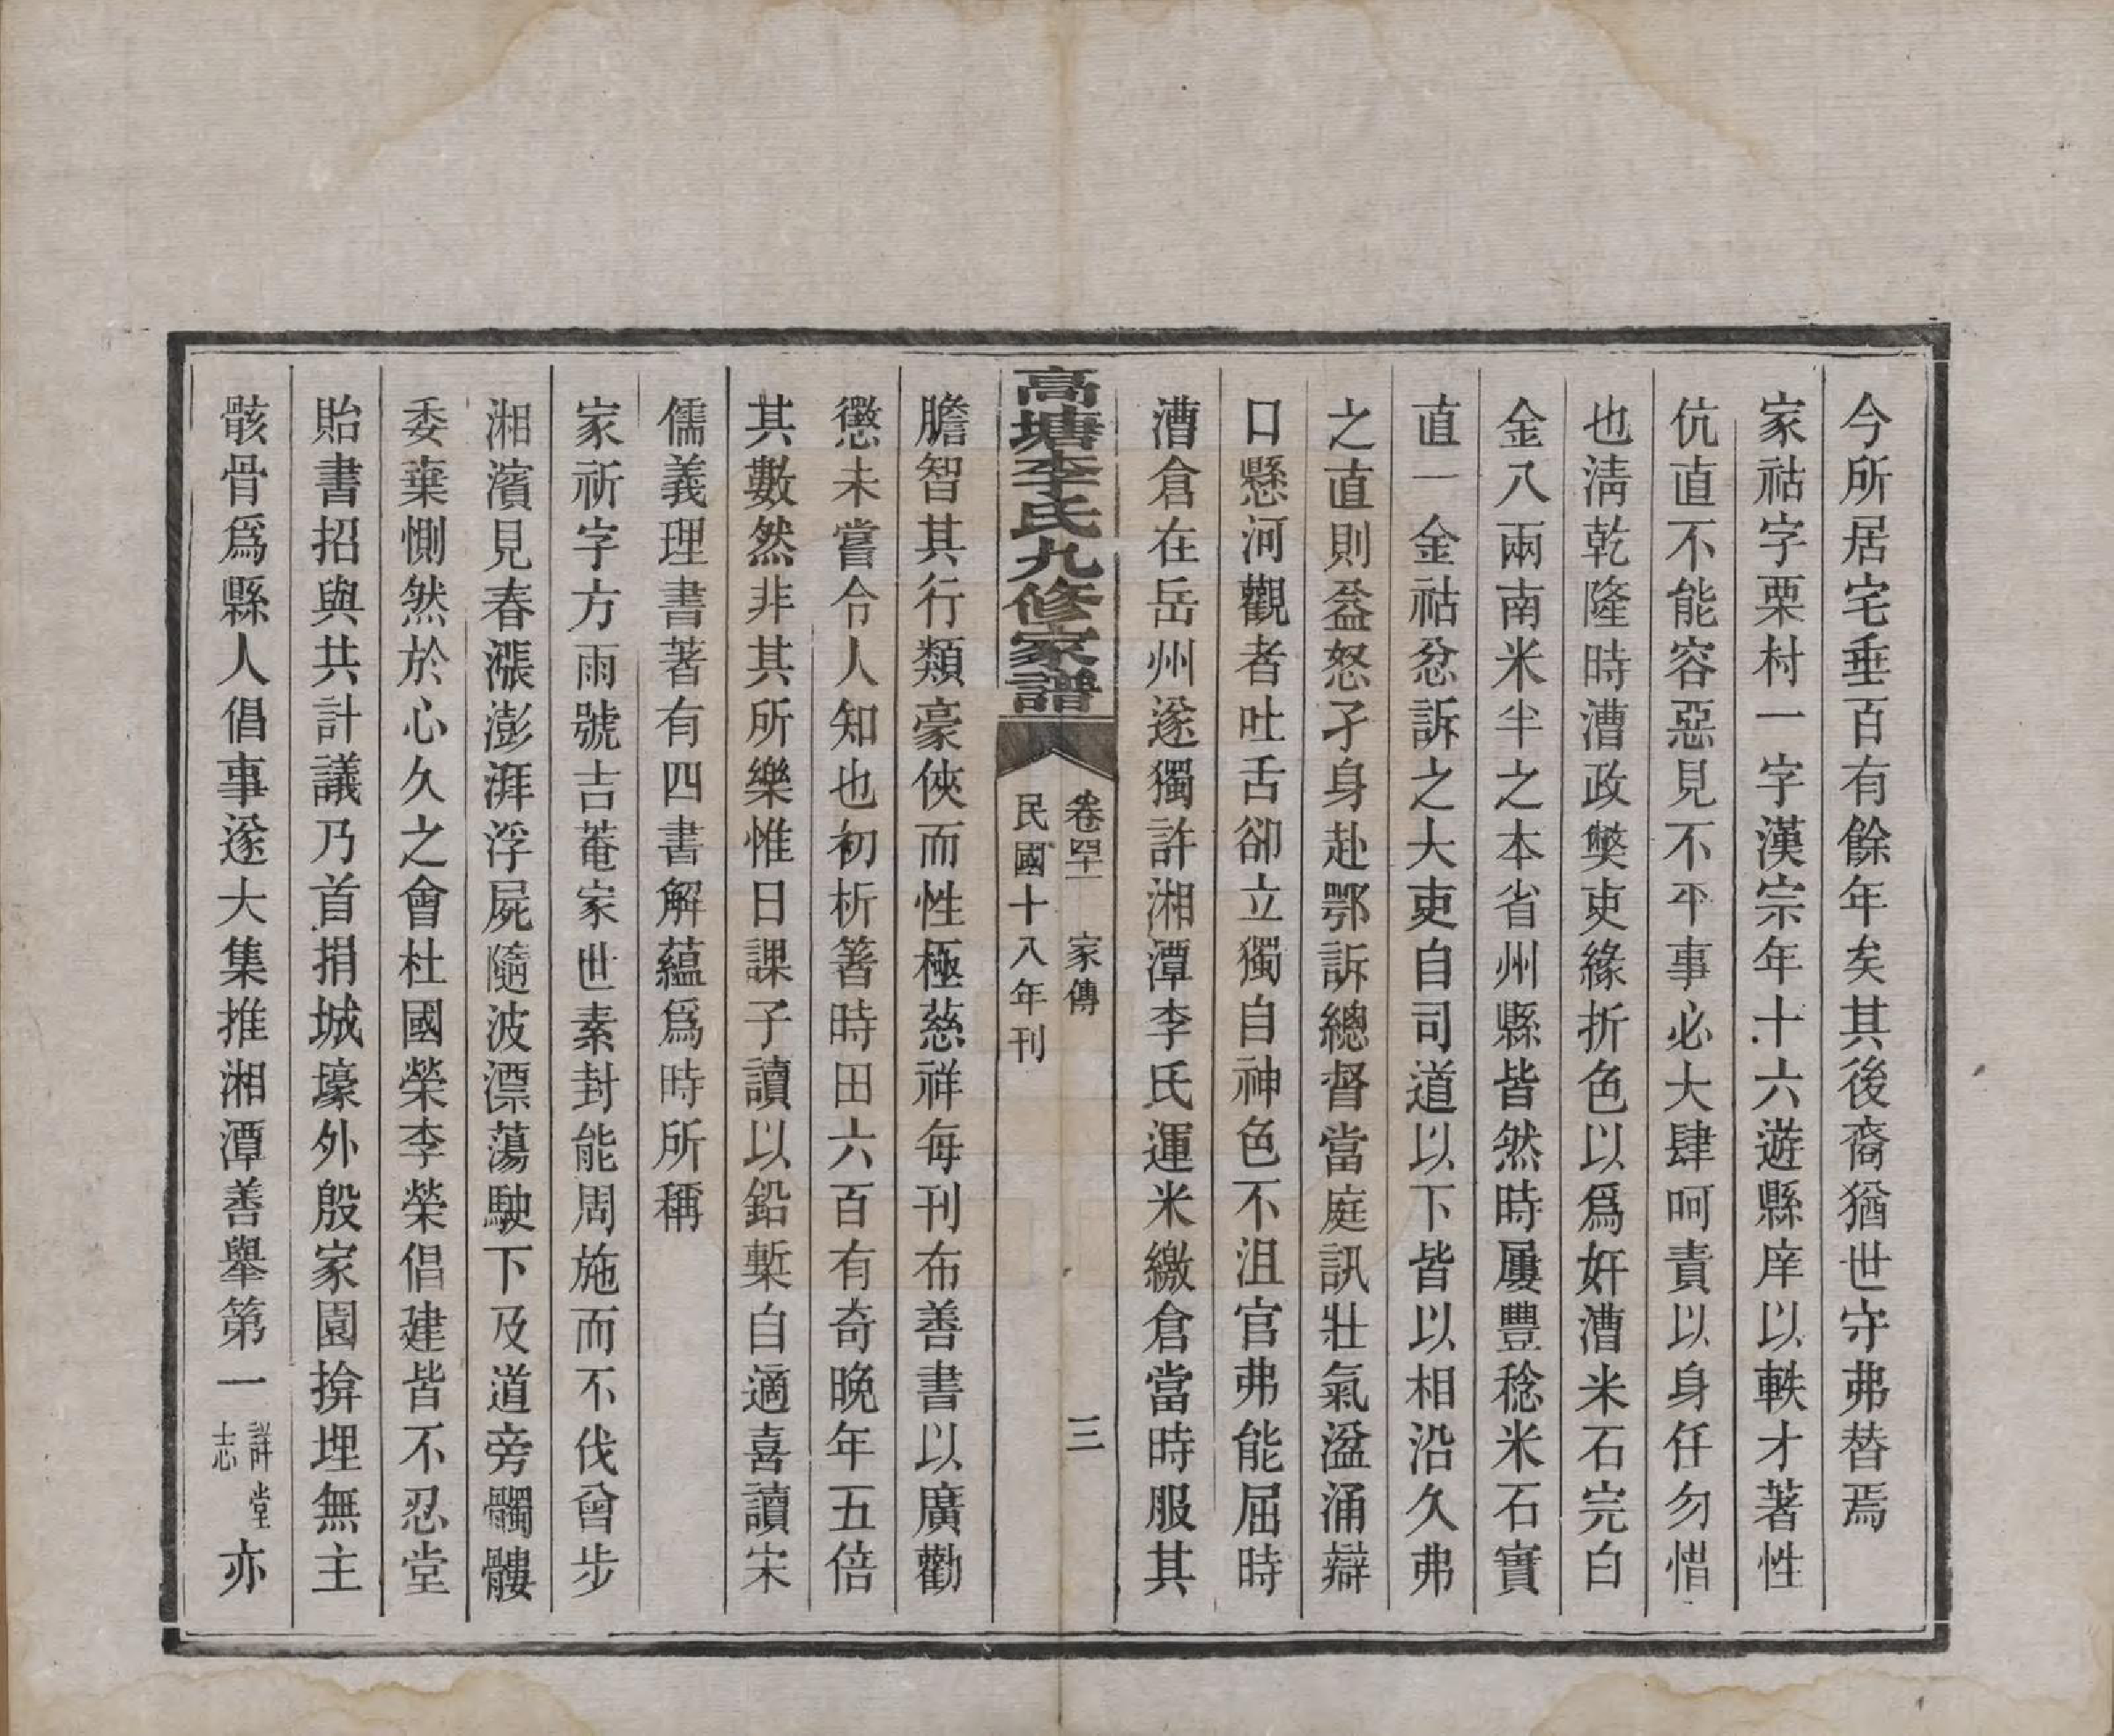 今所居宅垂百有餘年矣其後裔猶世守弗替焉
家祜字栗村一字漢宗年十六遊縣庠以軼才著性
伉直不能容惡見不平事必大肆呵責以身任勿惜
也淸乾隆時漕政獘吏緣折色以爲奸漕米石完白
金八兩南米半之本省州縣皆然時屢豐稔米石實
直一金祜忿訴之大吏自司道以下皆以相沿久弗
之直則益怒孑身赴鄂訴總督當庭訊壯氣湓涌辯
口懸河觀者吐舌卻立獨自神色不沮官弗能屈時
漕倉在岳州遂獨許湘潭李氏運米繳倉當時服其
高塘李氏九修家譜
卷四十一 家傳
三
民國十八年刊
膽智其行類豪俠而性極慈祥每刊布善書以廣勸
懲未嘗令人知也初析箸時田六百有奇晚年五倍
其數然非其所樂惟日課子讀以鉛槧自適喜讀宋
儒義理書著有四書解蘊爲時所稱
家祈字方雨號吉菴家世素封能周施而不伐曾步
湘濱見春漲澎湃浮屍隨波漂蕩駛下及道旁髑髏
委棄惻然於心久之會杜國榮李榮倡建皆不忍堂
貽書招與共計議乃首捐城壕外殷家園揜埋無主
骸骨爲縣人倡事遂大集推湘潭善舉第一詳堂志亦